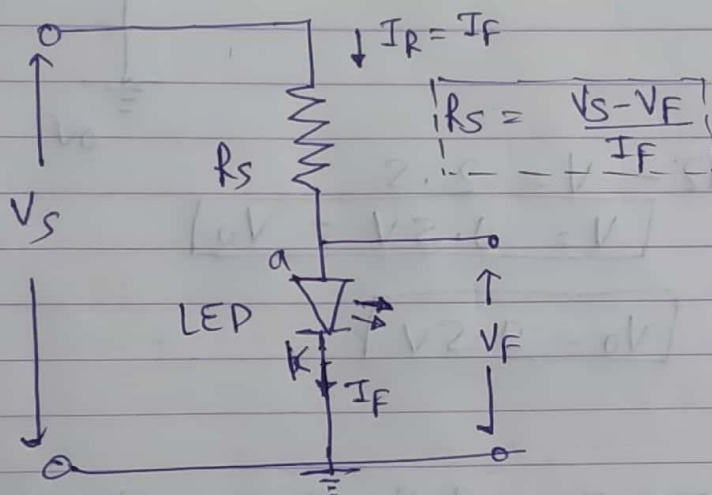 I_R = I_F
R_S = \frac{V_S - V_F}{I_F}
R_S
V_S
a
LED
K
I_F
V_F